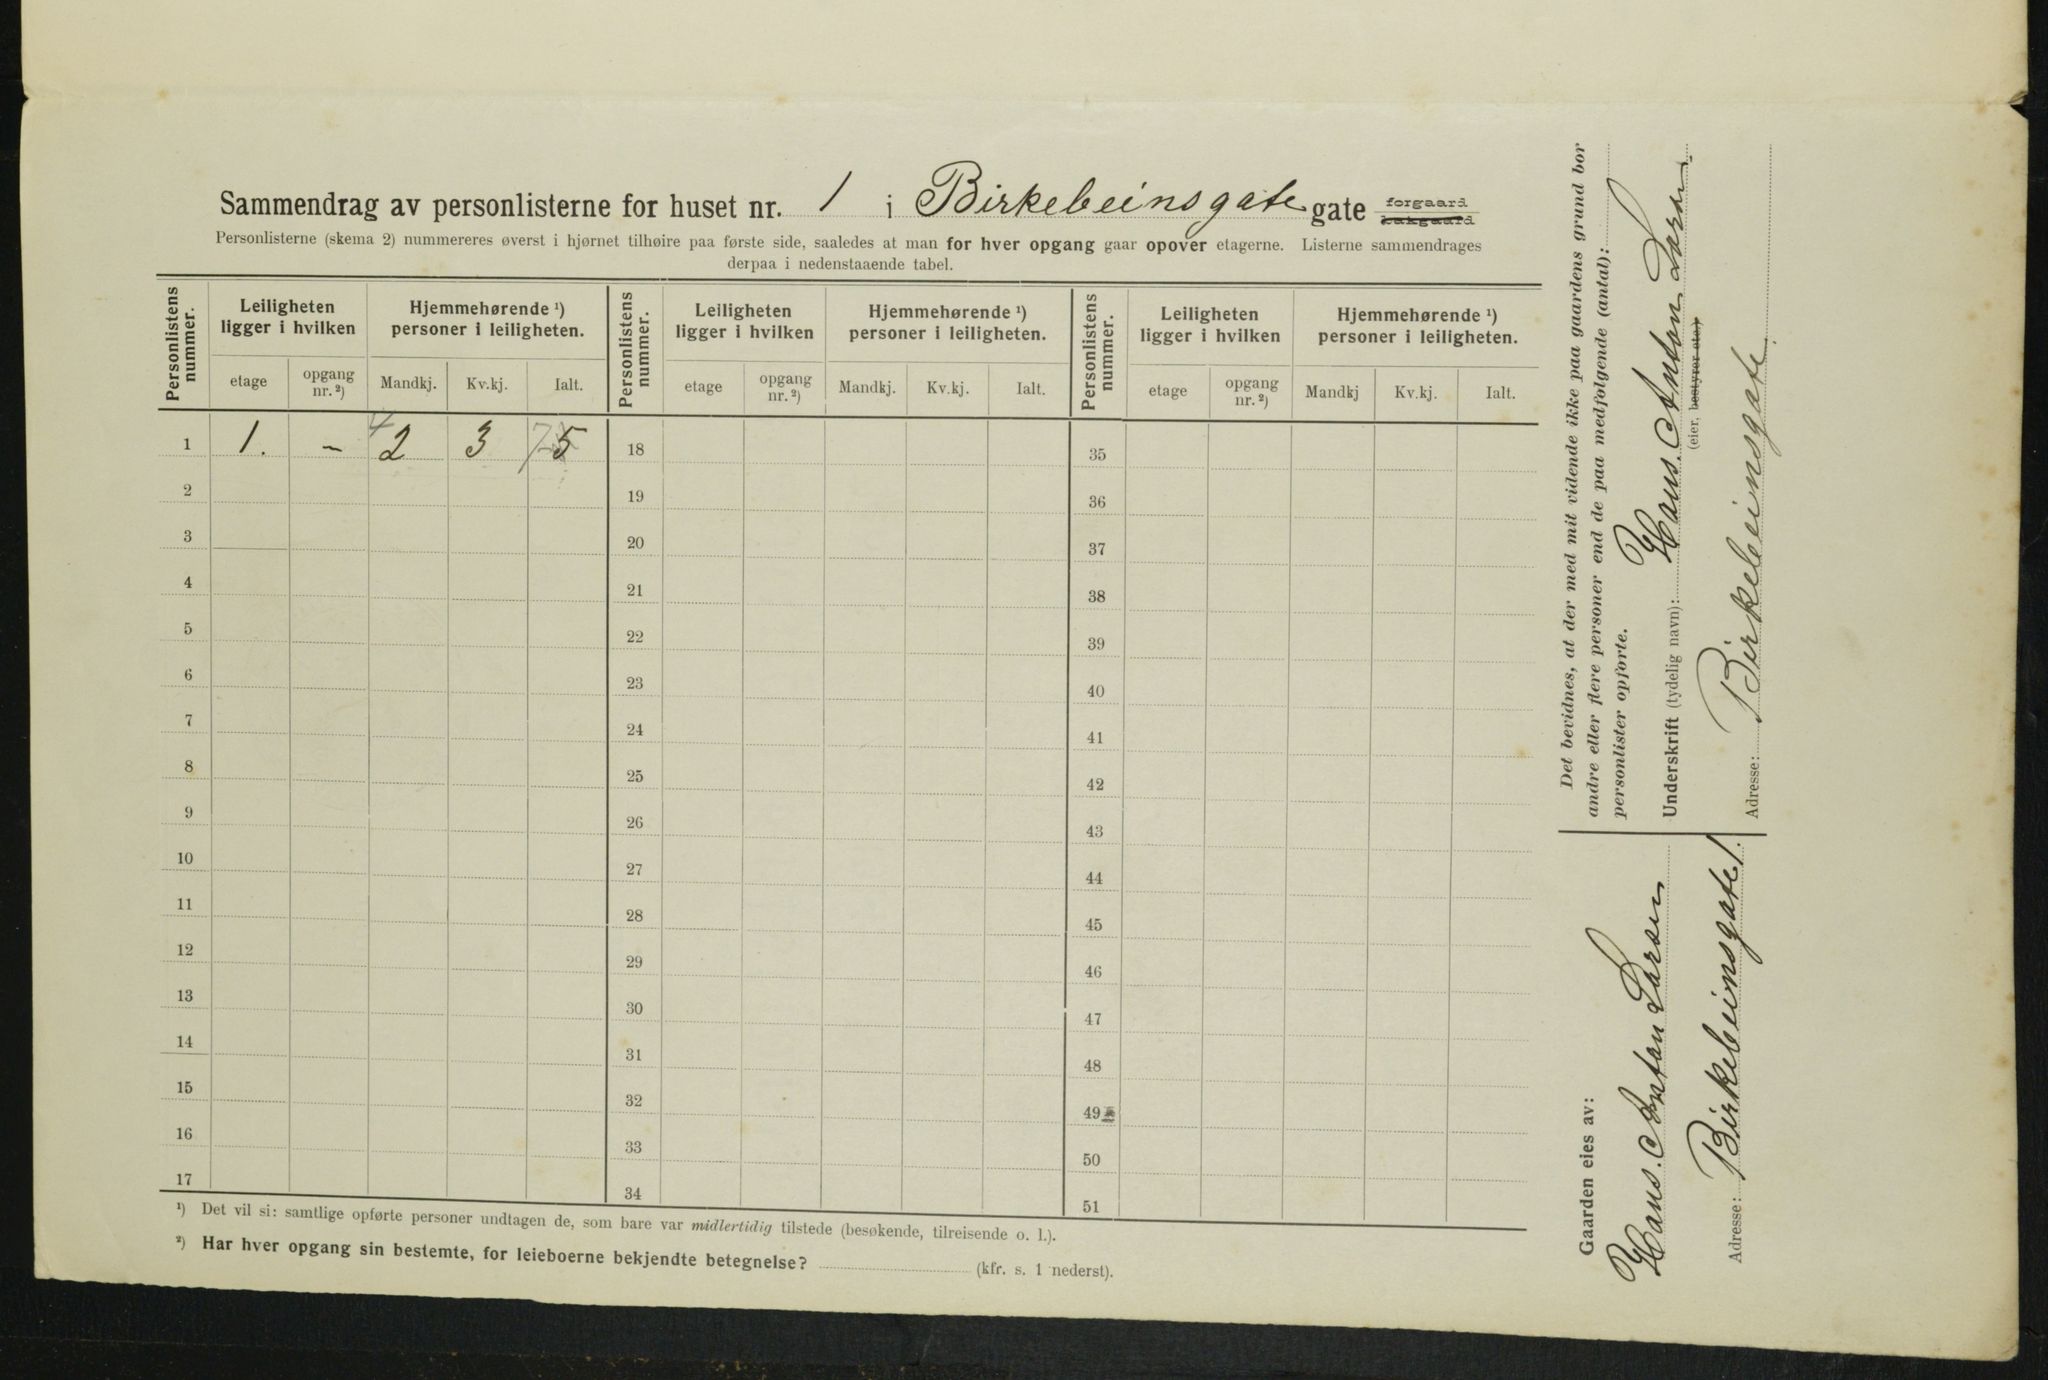 Sammendrag av personlisterne for huset nr. 1 i Birkebeinsgate gate forgaard
bakgaard
Personlisterne (skema 2) nummereres øverst i hjørnet tilhøire paa første side, saaledes at man for hver opgang gaar opover etagerne. Listerne sammendrages
derpaa i nedenstaaende tabel.
Personlistens nummer. Leiligheten ligger i hvilken Hjemmehørende ¹) personer i leiligheten. Personlistens nummer. Leiligheten ligger i hvilken Hjemmehørende ¹) personer i leiligheten. Personlistens nummer. Leiligheten ligger i hvilken Hjemmehørende ¹) personer i leiligheten.
etage opgang nr. ²) Mandkj. Kv.kj. Ialt. etage opgang nr. ²) Mandkj. Kv.kj. Ialt. etage opgang nr. ²) Mandkj Kv.kj. Ialt.
1 1. – 4 2 3 7 5 18 35
2 19 36
3 20 37
4 21 38
5 22 39
6 23 40
7 24 41
8 25 42
9 26 43
10 27 44
11 28 45
12 29 46
13 30 47
14 31 48
15 32 49
16 33 50
17 34 51
¹) Det vil si: samtlige opførte personer undtagen de, som bare var midlertidig tilstede (besøkende, tilreisende o. l.).
²) Har hver opgang sin bestemte, for leieboerne bekjendte betegnelse? (kfr. s. 1 nederst).
Det bevidnes, at der med mit vidende ikke paa gaardens grund bor
andre eller flere personer end de paa medfølgende (antal):
personlister opførte.
Underskrift (tydelig navn): Hans. Anton Larsen
(eier, bestyrer etc.)
Adresse: Birkebeinsgate
Gaarden eies av:
Hans. Anton Larsen
Adresse: Birkebeinsgate 1.